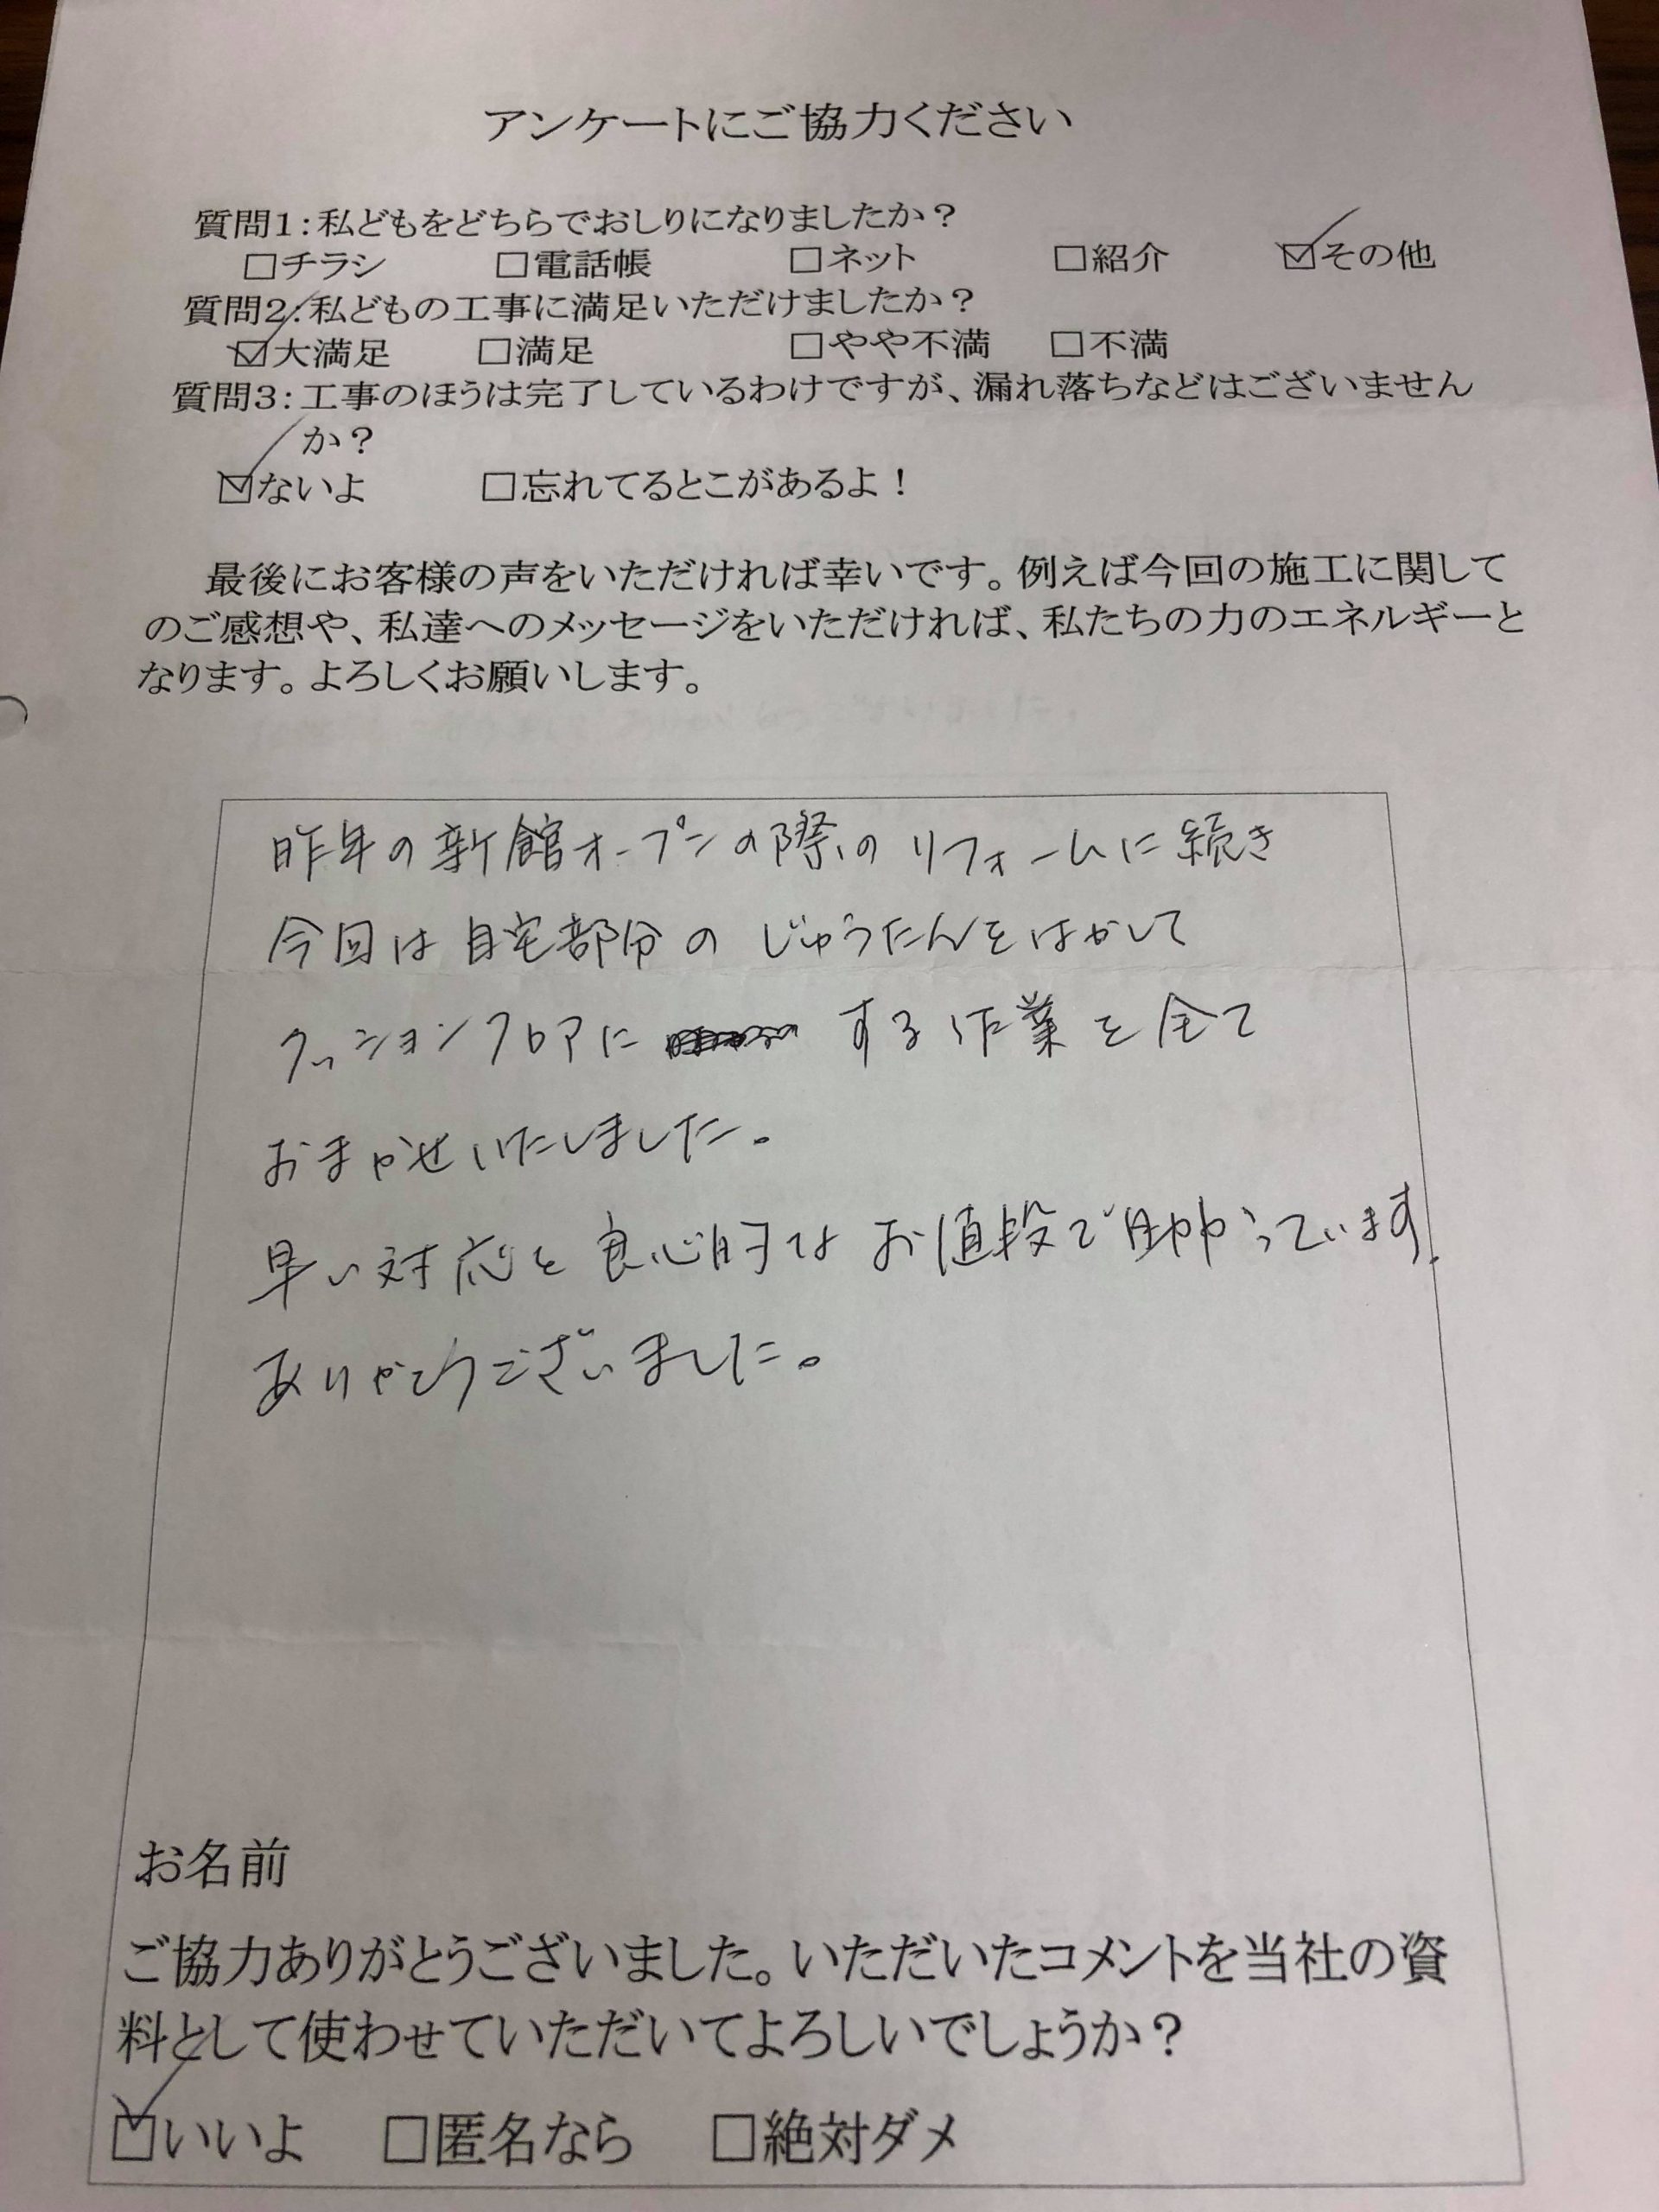 アンケートにご協力ください
質問1：私どもをどちらでおしりになりましたか？
□チラシ □電話帳 □ネット □紹介 ☑その他
質問2：私どもの工事に満足いただけましたか？
☑大満足 □満足 □やや不満 □不満
質問3：工事のほうは完了しているわけですが、漏れ落ちなどはございません
か？
☑ないよ □忘れてるとこがあるよ！
最後にお客様の声をいただければ幸いです。例えば今回の施工に関して
のご感想や、私達へのメッセージをいただければ、私たちの力のエネルギーと
なります。よろしくお願いします。
昨年の新館オープンの際のリフォームに続き
今回は自宅部分のじゅうたんをはがして
クッションフロアに する作業を全て
おまかせいたしました。
早い対応と良心的なお値段で助かっています。
ありがとうございました。
お名前
ご協力ありがとうございました。いただいたコメントを当社の資
料として使わせていただいてよろしいでしょうか？
☑いいよ □匿名なら □絶対ダメ